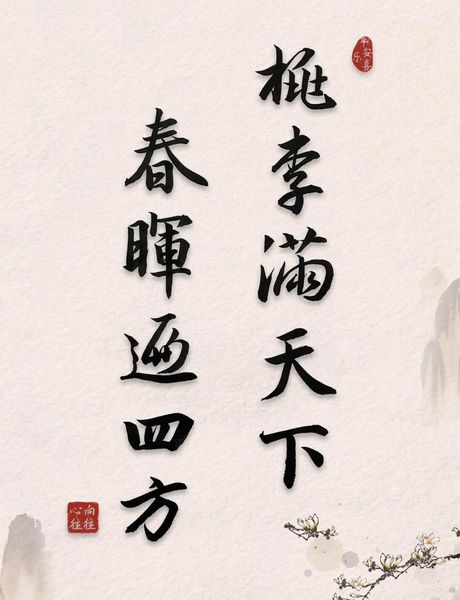 平安喜乐
桃李满天下
春晖遍四方
心之所向